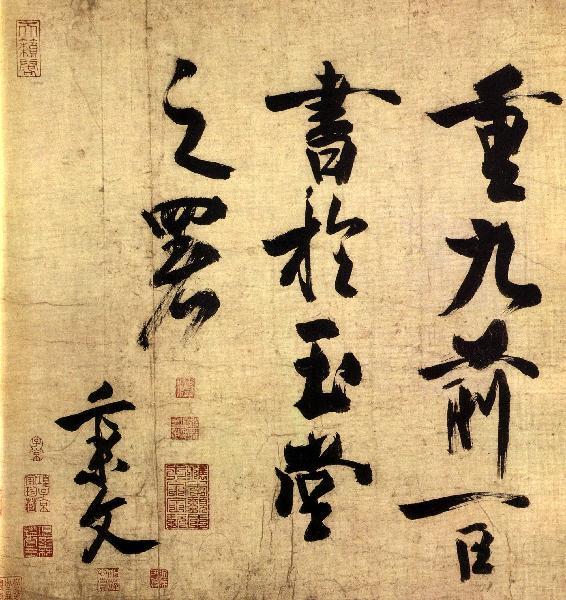 重九前一日
書於玉堂
之署
秉文